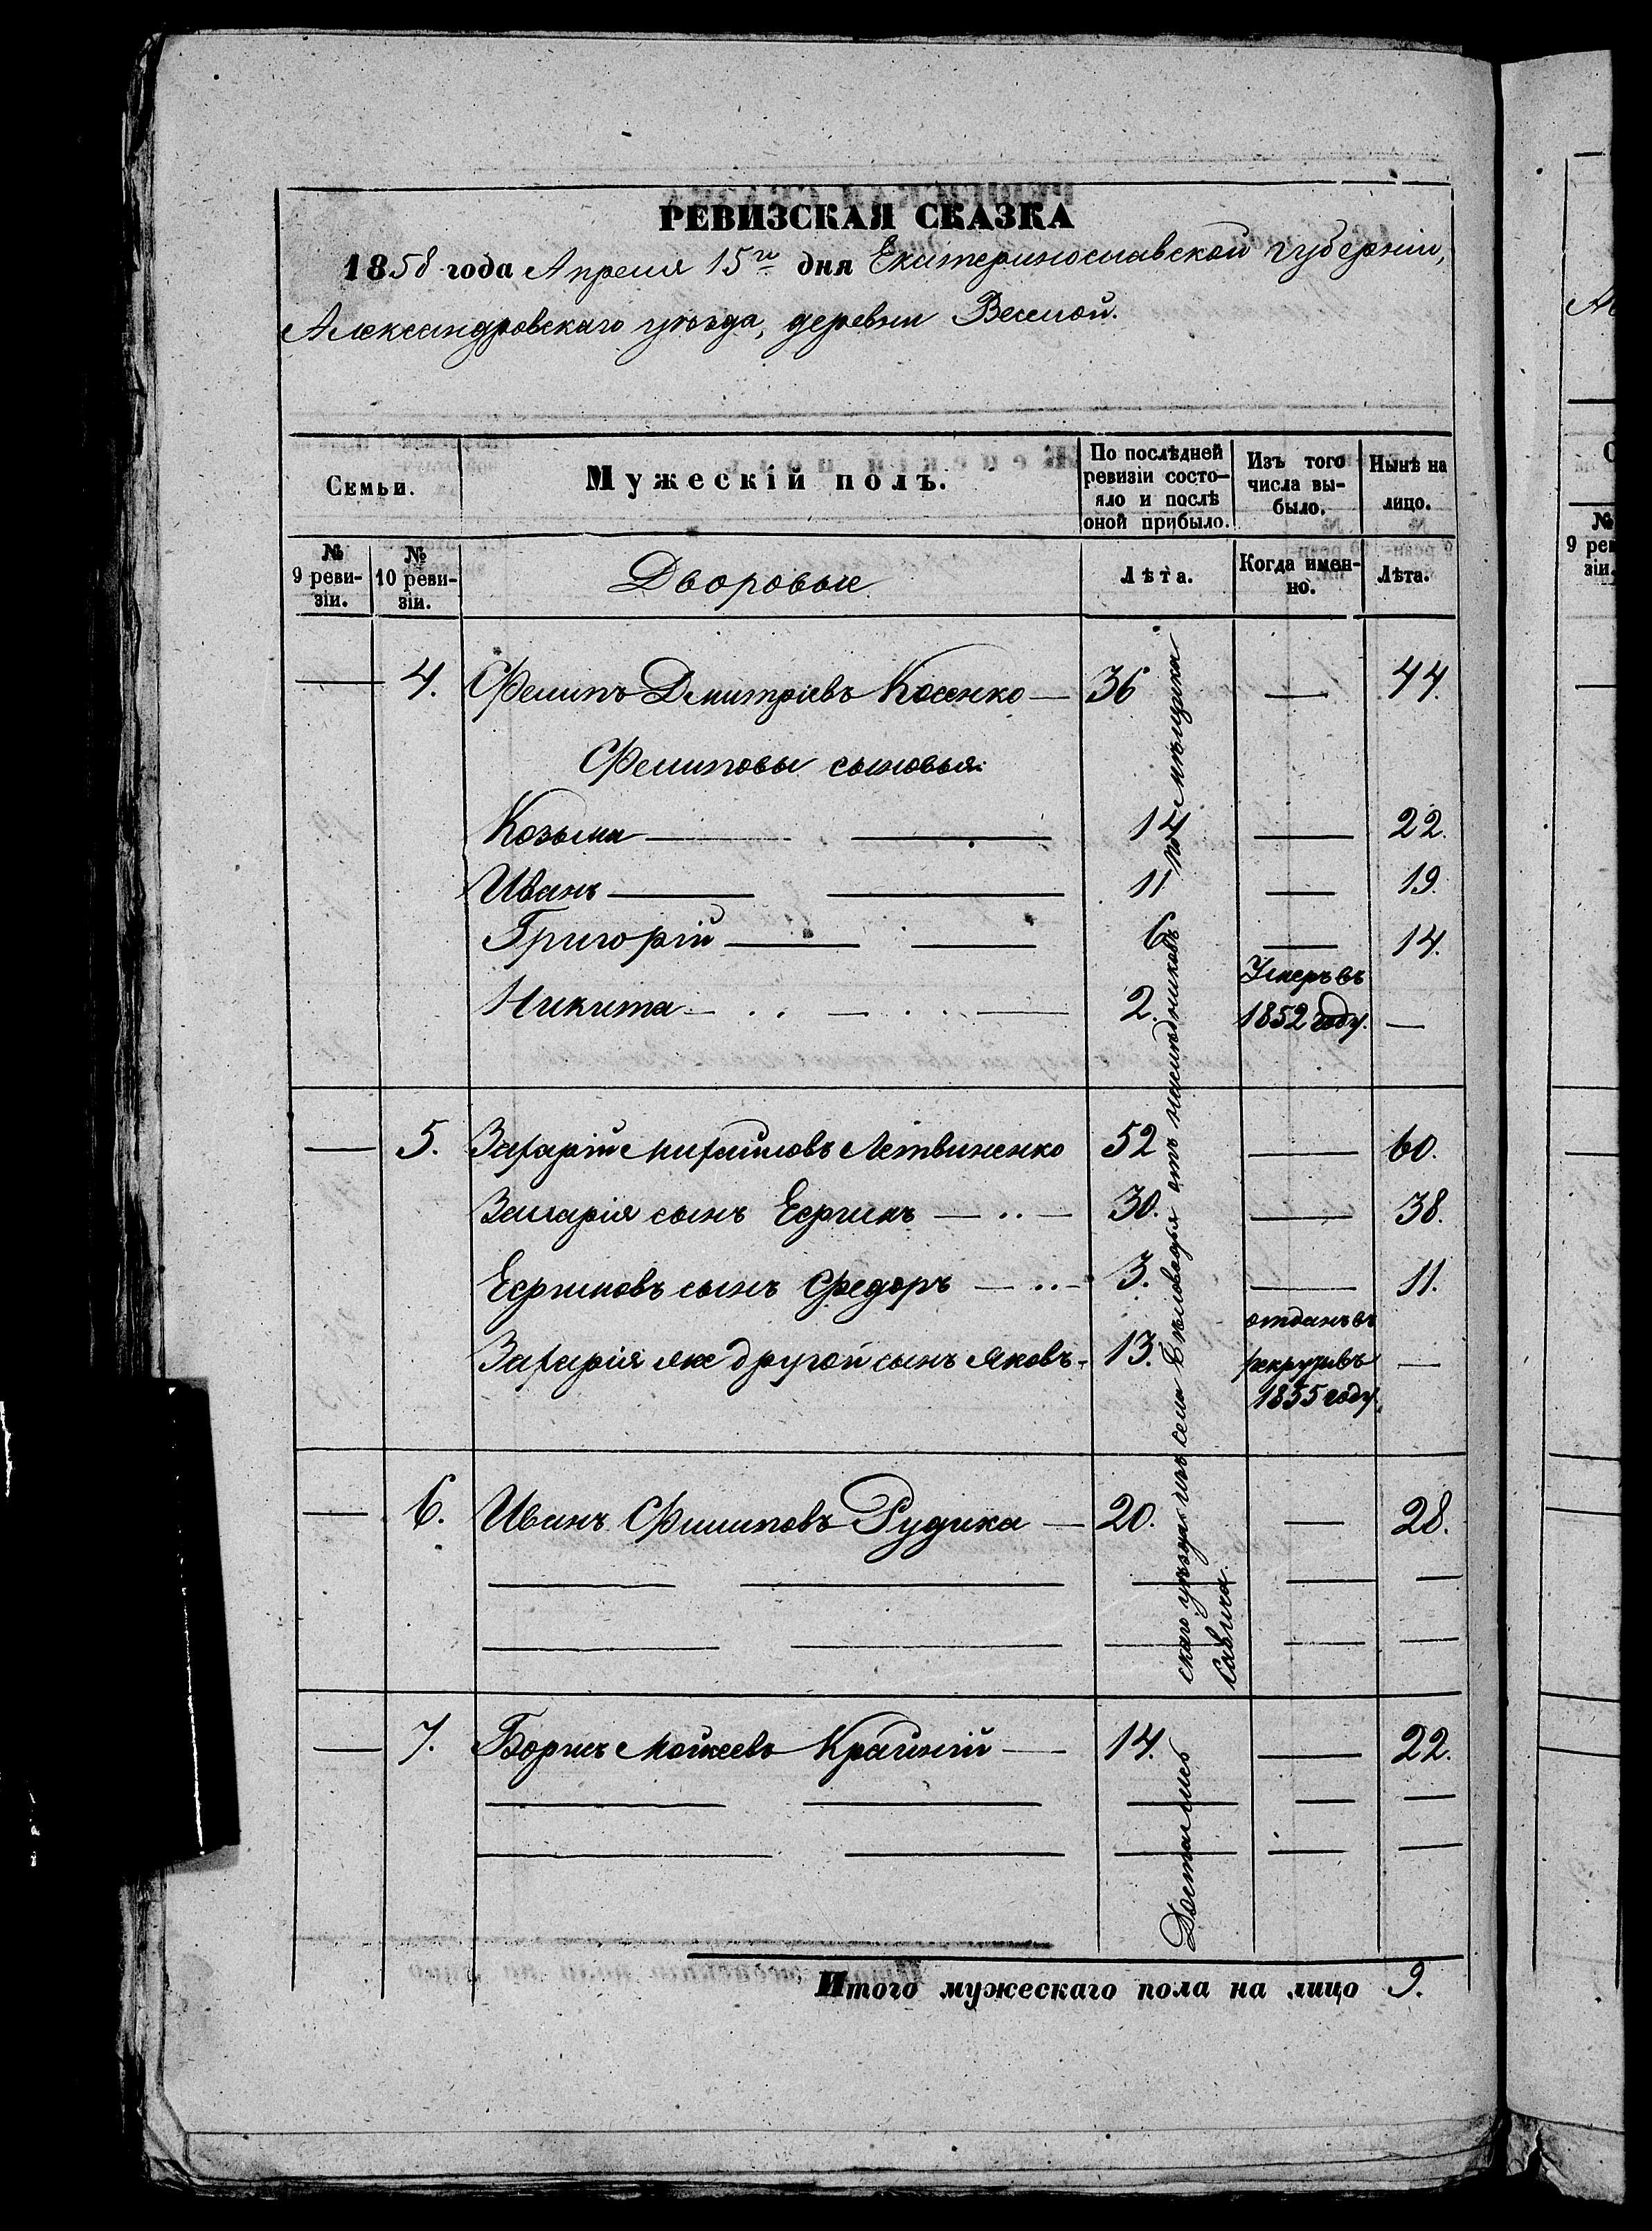 РЕВИЗСКАЯ СКАЗКА
1858 года Апреля 15го дня Екатеринославской губерніи,
Александровскаго уѣзда, деревни Веселой.
Семьи.
Мужескій полъ.
По послѣдней ревизіи состо-
яло и послѣ
оной прибыло.
Изъ того
числа вы-
было.
Нынѣ на
лицо.
№
9 реви-
зіи.
№
10 реви-
зіи.
Дворовые
Лѣта.
Когда имен-
но.
Лѣта.
4. Филипъ Дмитріевъ Косенко — 36 — 44.
Филиповы сыновья:
Козьма — 14 — 22.
Иванъ — 11 — 19.
Григорій — 6 — 14.
Никита — 2. Умеръ въ
1852 году. —
5. Захарій Михайловъ Летвиненко 52 — 60.
Захарія сынъ Ефримъ — 30. — 38.
Ефримовъ сынъ Федоръ — 3. — 11.
Захарія же другой сынъ Яковъ — 13. отданъ въ
рекруты въ
1855 году. —
6. Иванъ Филиповъ Рудика — 20. — 28.
7. Борисъ Мойсеевъ Крайній — 14. — 22.
Достались
скаго уѣзда изъ села Бѣловодья отъ наслѣдниковъ помѣщика
Савича.
Итого мужескаго пола на лицо 9.
№
9 рев
зіи.